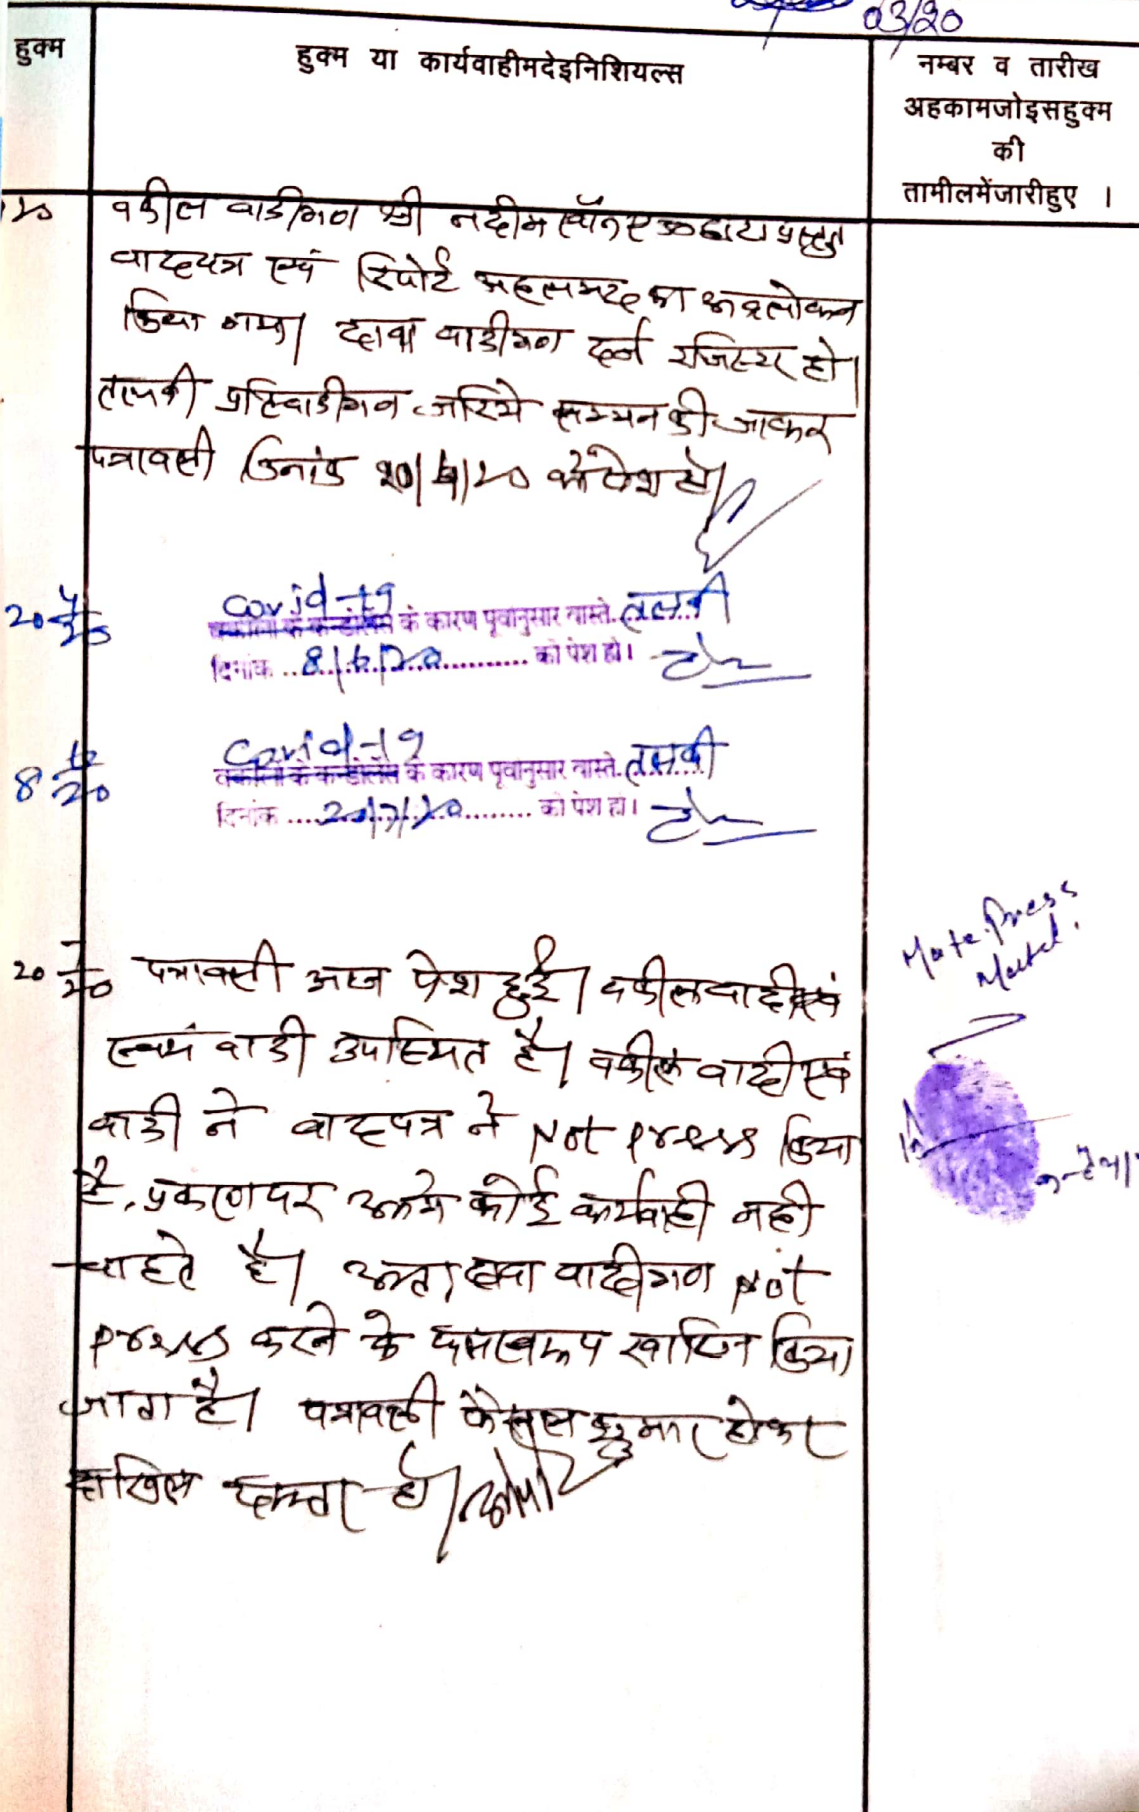 03/20
हुक्म
हुक्म या कार्यवाहीमदेइनिशियल्स
नम्बर व तारीख
अहकामजोइसहुक्म
की
तामीलमेंजारीहुए ।
वकील वादीगण श्री नदीम द्वारा प्रस्तुत
वादपत्र एवं रिपोर्ट अहलमद का अवलोकन
किया गया। दावा वादीगण दर्ज रजिस्टर हो।
तलबी प्रतिवादीगण जरिये सम्मन की जाकर
पत्रावली दिनांक 20/4/20 को पेश हो।
20 4/20
Covid-19
वकीलों के कन्डोलेंस के कारण पूर्वानुसार वास्ते तलबी
दिनांक ..8/6/20.......... को पेश हो।
8 6/20
Covid-19
वकीलों के कन्डोलेंस के कारण पूर्वानुसार वास्ते तलबी
दिनांक ....20/7/20......... को पेश हो।
20 7/20 पत्रावली आज पेश हुई। वकील वादी एवं
स्वयं वादी उपस्थित है। वकील वादी एवं
वादी ने वादपत्र ने Not press किया
है, प्रकरण पर आगे कोई कार्यवाही नही
चाहते है। अतः दावा वादीगण Not
press करने के फलस्वरूप खारिज किया
जाता है। पत्रावली फैसल शुमार होकर
दाखिल दफ्तर हो।
Press